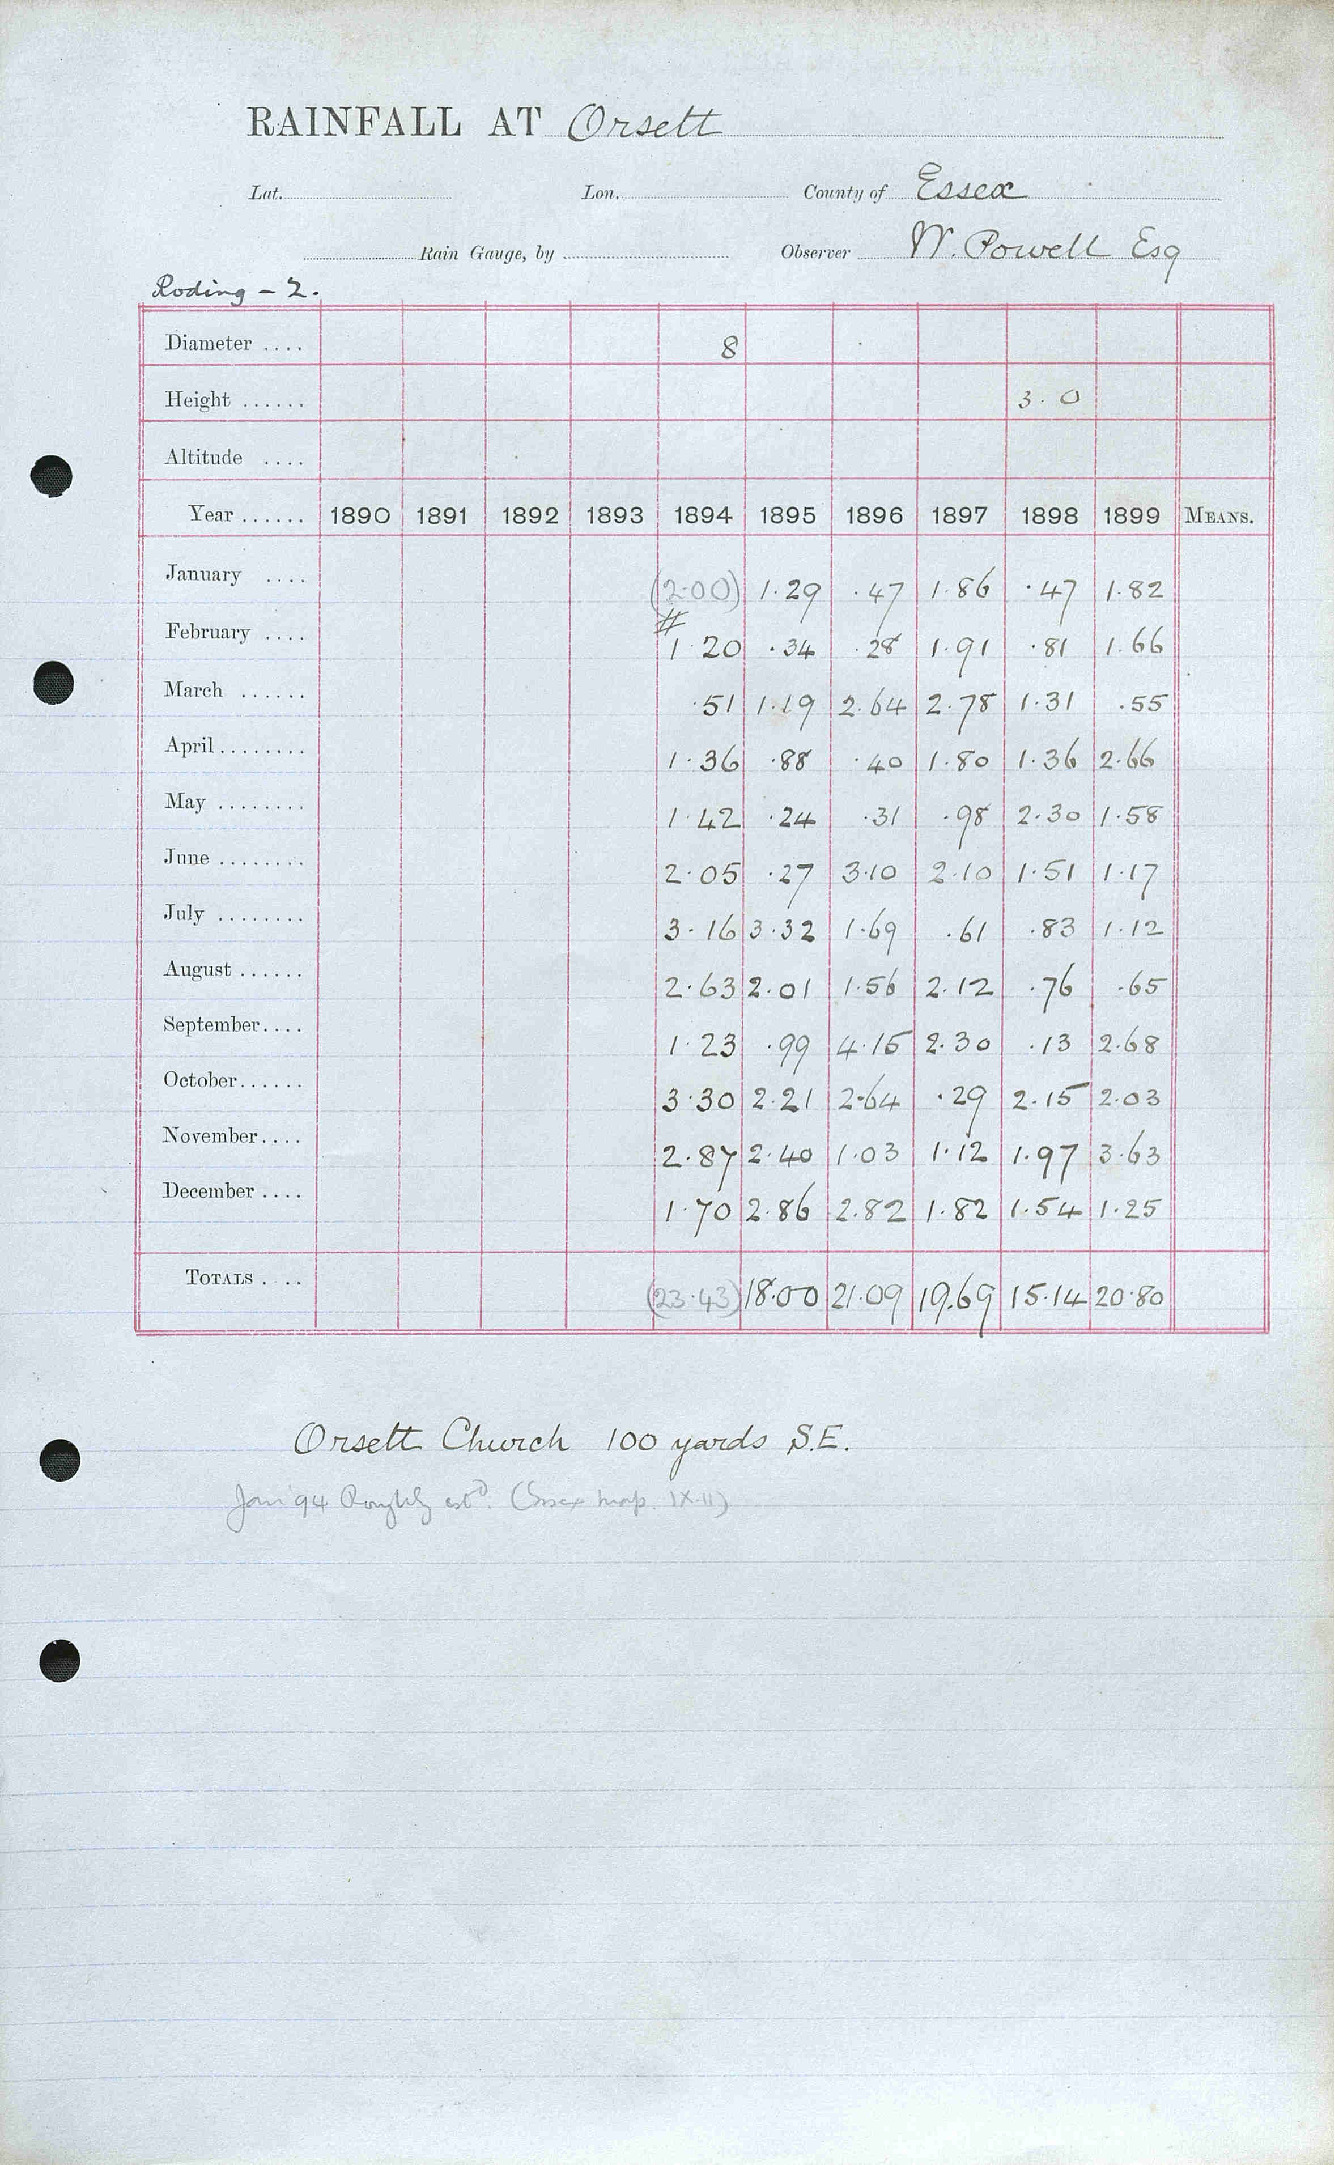 RAINFALL AT Orsett
Lat. Lon. County of Essex
Rain Gauge, by Observer W. Powell Esq
Roding - 2.
Diameter .... 8
Height ...... 3. 0
Altitude ....
Year ...... 1890 1891 1892 1893 1894 1895 1896 1897 1898 1899 MEANS.
January .... (2.00) 1.29 .47 1.86 .47 1.82
February .... # 1.20 .34 .28 1.91 .81 1.66
March ...... .51 1.19 2.64 2.78 1.31 .55
April ........ 1.36 .88 .40 1.80 1.36 2.66
May ........ 1.42 .24 .31 .98 2.30 1.58
June ........ 2.05 .27 3.10 2.10 1.51 1.17
July ........ 3.16 3.32 1.69 .61 .83 1.12
August ...... 2.63 2.01 1.56 2.12 .76 .65
September.... 1.23 .99 4.15 2.30 .13 2.68
October...... 3.30 2.21 2.64 .29 2.15 2.03
November.... 2.87 2.40 1.03 1.12 1.97 3.63
December .... 1.70 2.86 2.82 1.82 1.54 1.25
TOTALS .... (23.43) 18.00 21.09 19.69 15.14 20.80
Orsett Church 100 yards S.E.
Jan '94 Roughly estd. (Essex map. IX.11)